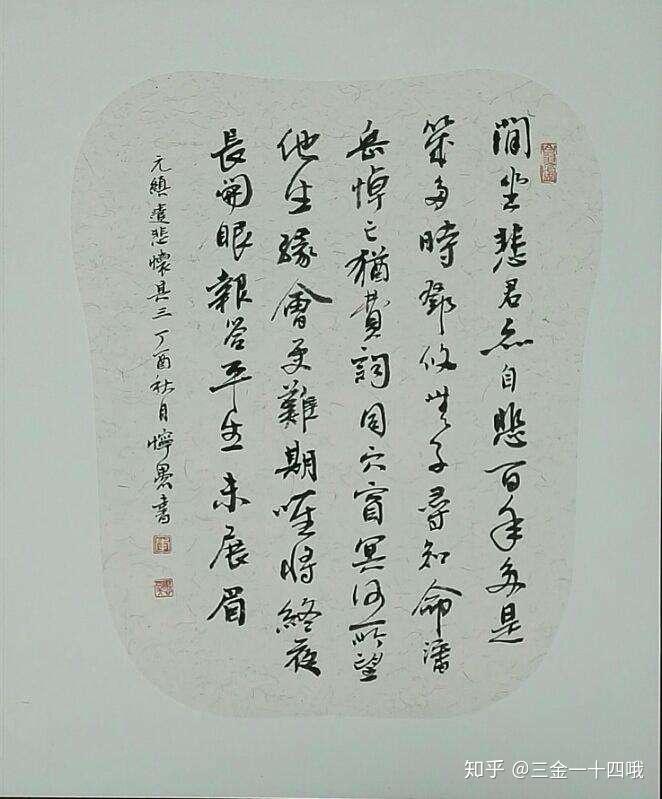 閒坐悲君亦自悲百年多是
幾多時鄧攸無子尋知命潘
岳悼亡猶費詞同穴窅冥何所望
他生緣會更難期唯將終夜
長開眼報答平生未展眉
元縝遣悲懷其三丁酉秋月懧愚書
知乎 @三金一十四哦